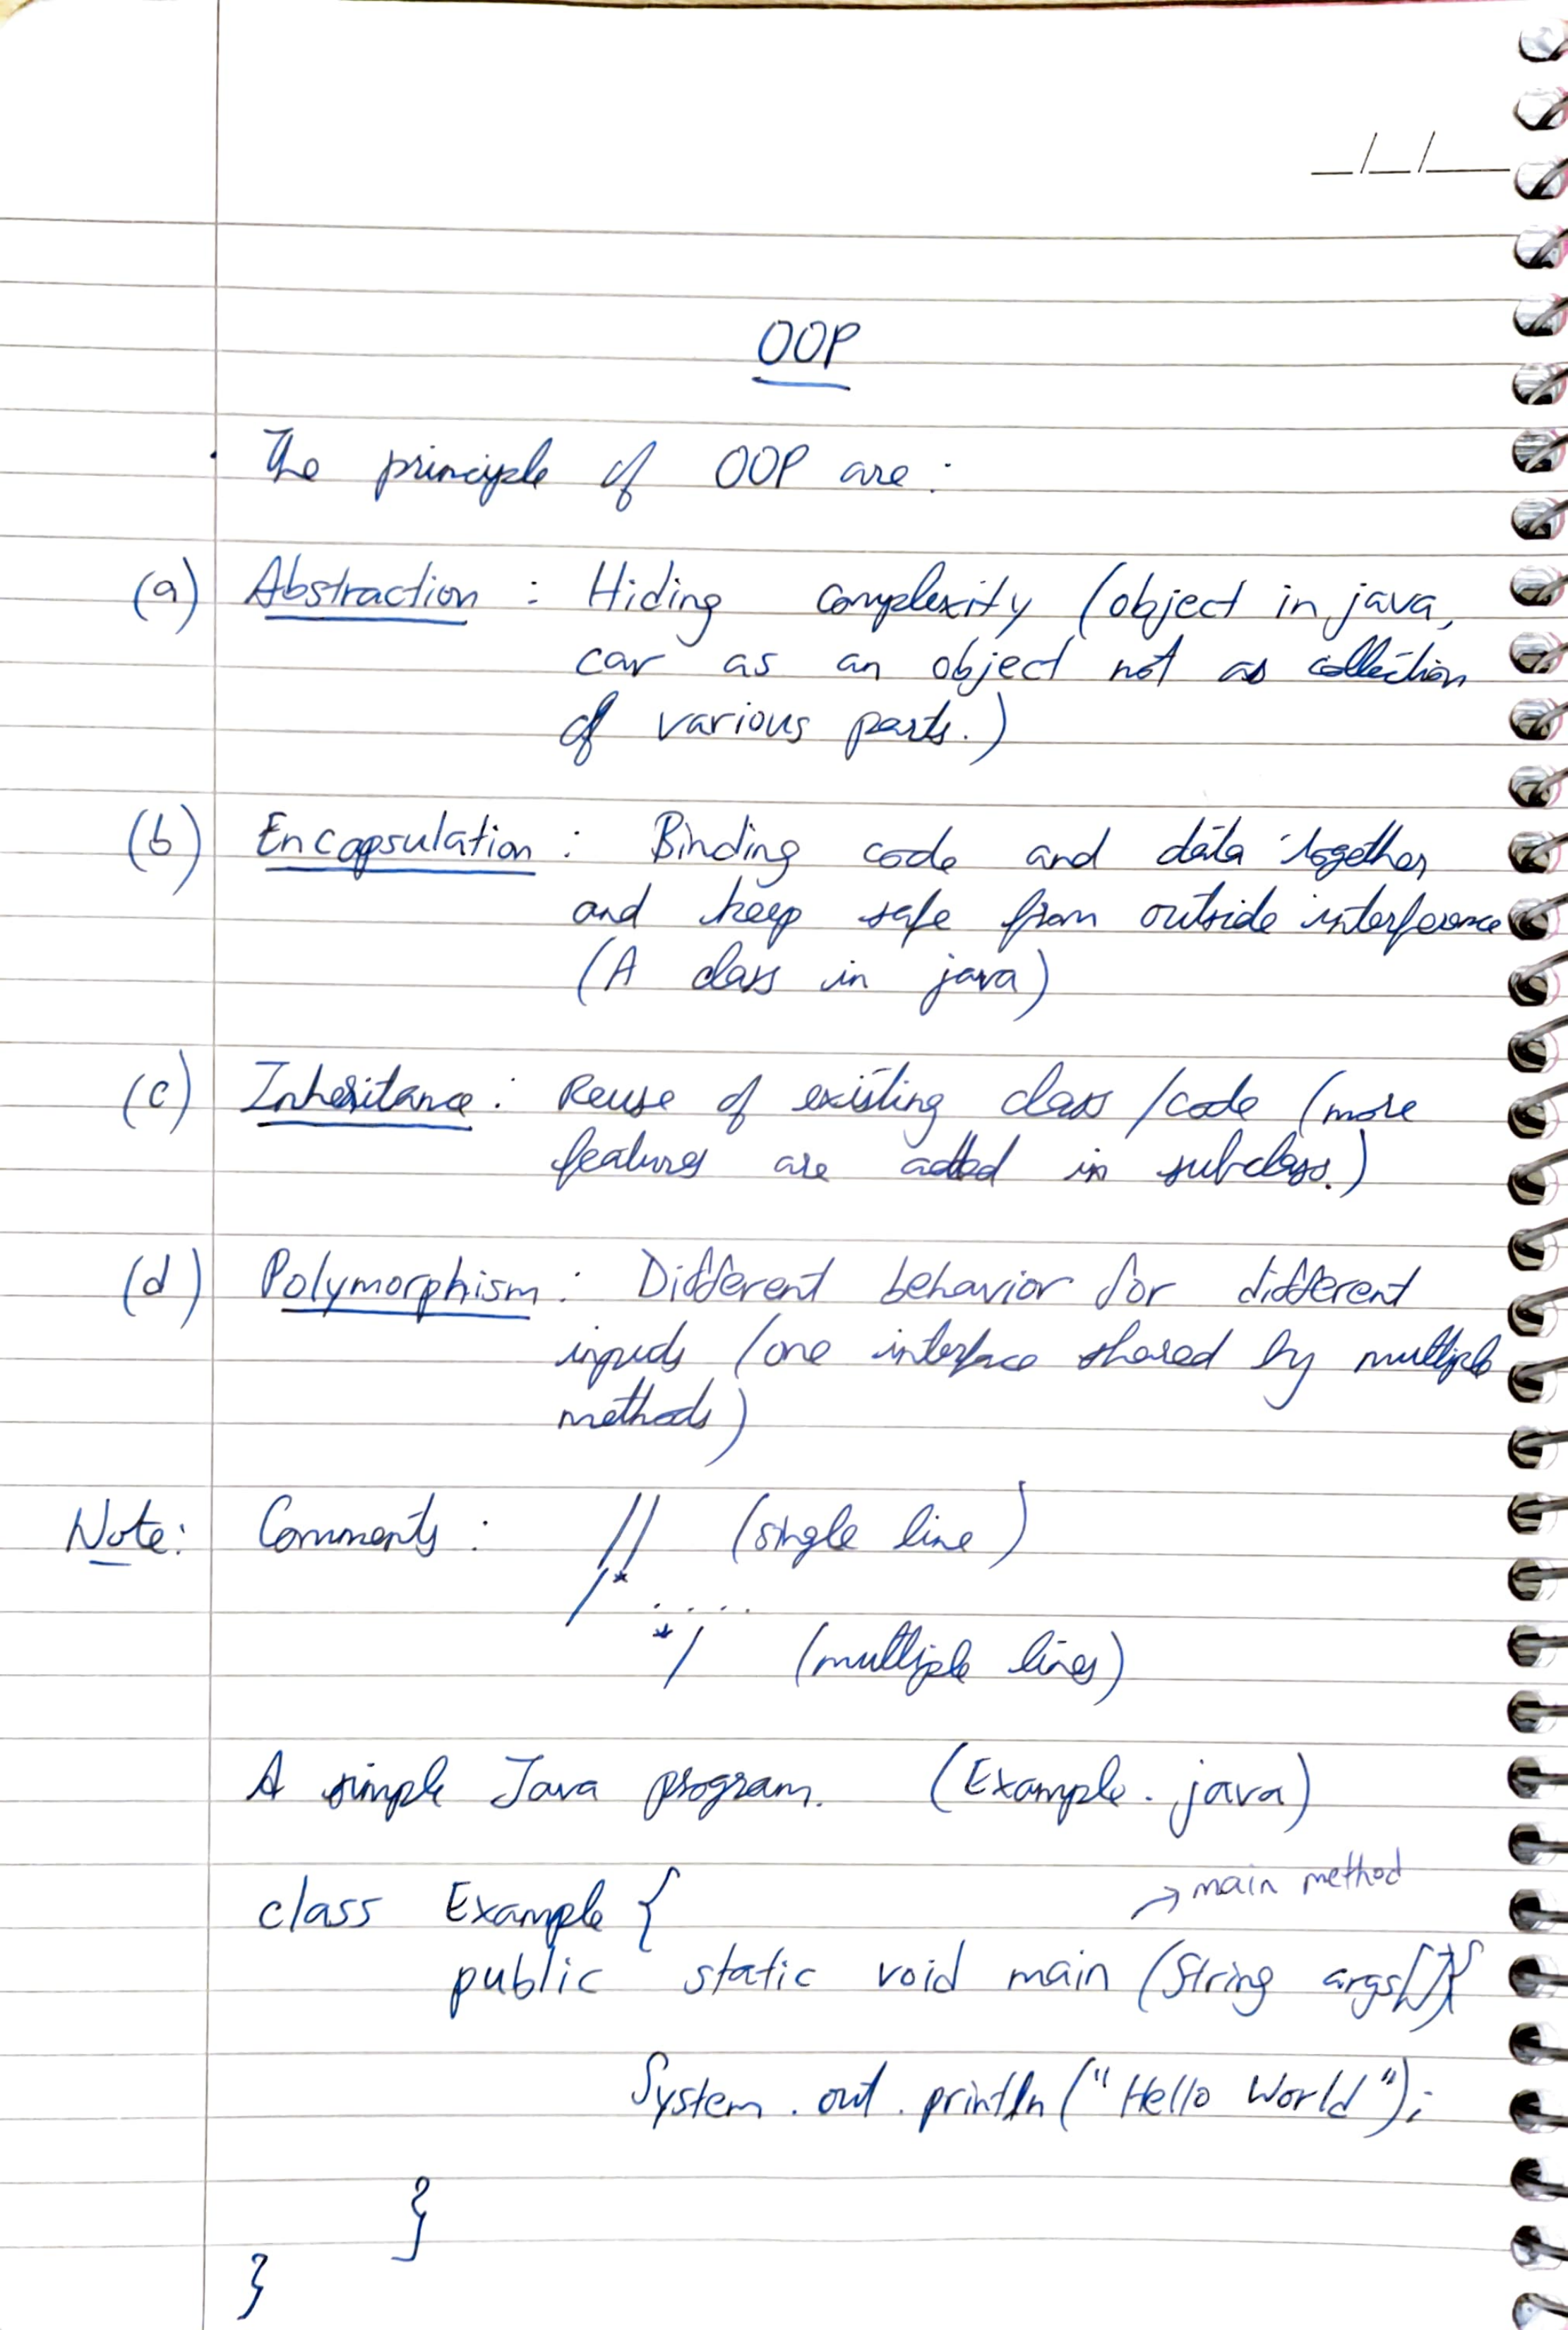 _/_/__
OOP
The principle of OOP are :
(a) Abstraction : Hiding complexity (object in java,
car as an object not as collection
of various parts.)
(b) Encapsulation : Binding code and data together
and keep safe from outside interference
(A class in java)
(c) Inheritance : Reuse of existing class /code (more
features are added in subclass.)
(d) Polymorphism : Different behavior for different
inputs (one interface shared by multiple
methods)
Note: Comments : // (single line)
/* .....
*/ (multiple lines)
A simple Java program. (Example.java)
→ main method
class Example {
public static void main (String args[]){
System.out.println("Hello World");
}
}